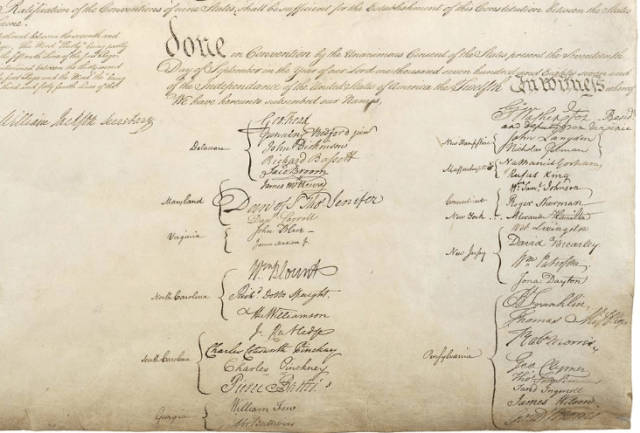 Ratification of the Conventions of nine States, shall be sufficient for the Establishment of this Constitution between the States
done in Convention by the Unanimous Consent of the States present the Seventeenth
Day of September in the Year of our Lord one thousand seven hundred and Eighty seven and
of the Independance of the United States of America the Twelfth In Witness whereof
We have hereunto subscribed our Names,
William Jackson Secretary
Delaware
Geo: Read
Gunning Bedford jun
John Dickinson
Richard Bassett
Jaco: Broom
Maryland
James McHenry
Dan of St Thos. Jenifer
Danl Carroll
Virginia
John Blair
James Madison Jr.
North Carolina
Wm Blount
Richd. Dobbs Spaight.
Hu Williamson
South Carolina
J. Rutledge
Charles Cotesworth Pinckney
Charles Pinckney
Pierce Butler
Georgia
William Few
Abr Baldwin
Go Washington Presidt
and deputy from Virginia
New Hampshire
John Langdon
Nicholas Gilman
Massachusetts
Nathaniel Gorham
Rufus King
Connecticut
Wm. Saml. Johnson
Roger Sherman
New York
Alexander Hamilton
New Jersey
Wil: Livingston
David Brearley
Wm Paterson
Jona: Dayton
Pensylvania
B Franklin
Thomas Mifflin
Robt Morris
Geo. Clymer
Thos. FitzSimons
Jared Ingersoll
James Wilson
Gouv Morris